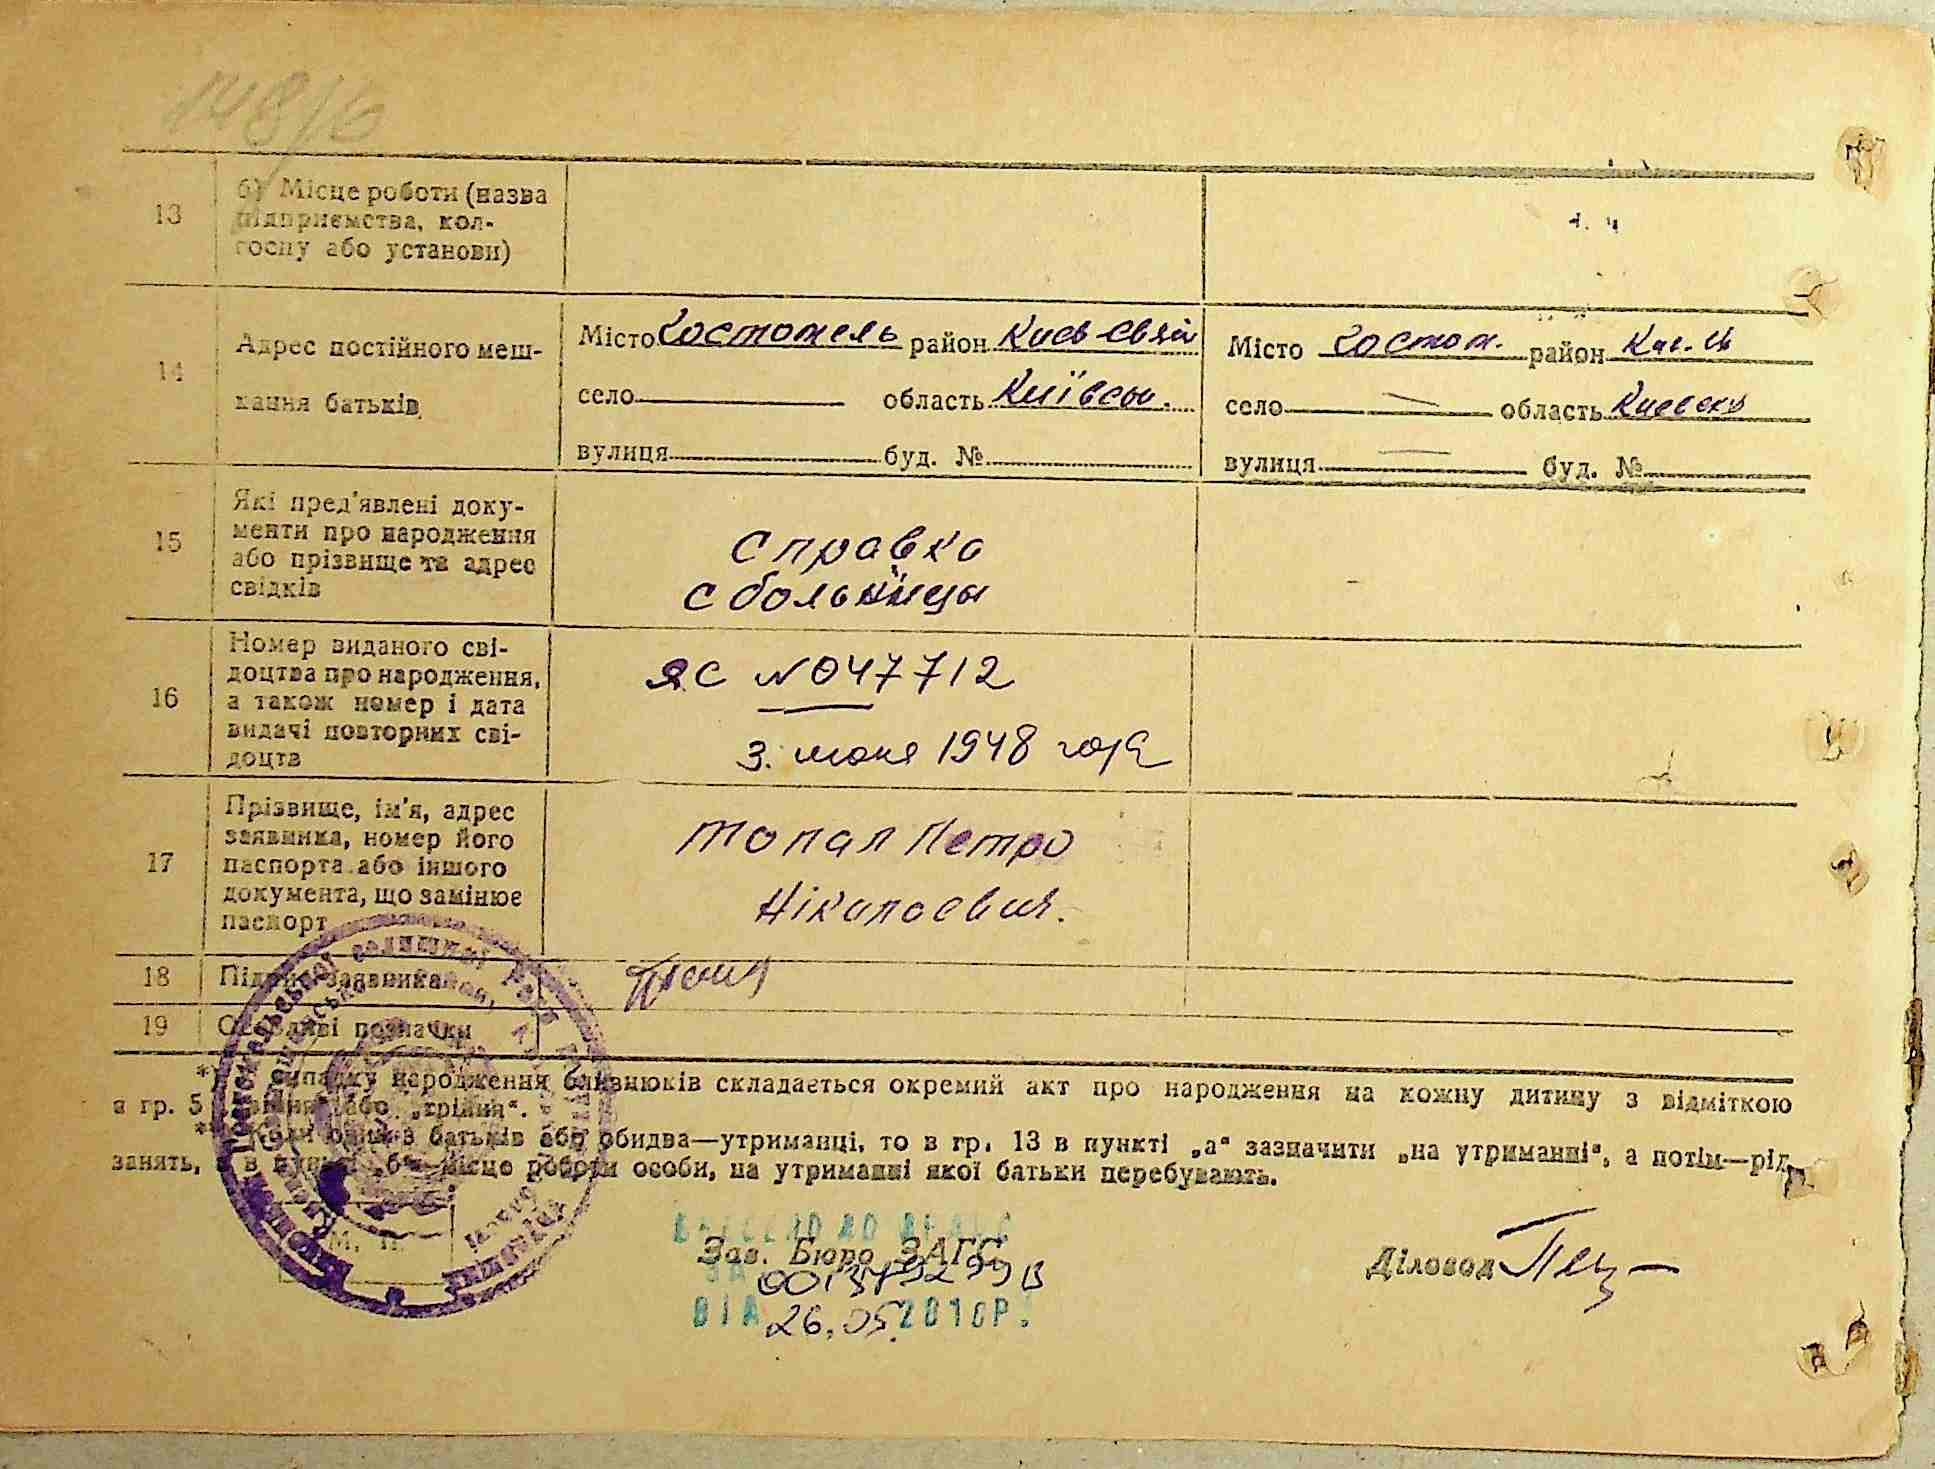 13
б) Місце роботи (назва
підприємства, кол-
госпу або установи)
14
Адрес постійного меш-
кання батьків
Місто Гостомель район Киев-Свят
село область Київськ.
вулиця буд. №
Місто Гостом. район Киє.
село область Киевск
вулиця буд. №
15
Які пред'явлені доку-
менти про народження
або прізвище та адрес
свідків
Справка
с больниці
16
Номер виданого сві-
доцтва про народження,
а також номер і дата
видачі повторних сві-
доцтв
ЯС №047712
3. июня 1948 года
17
Прізвище, ім'я, адрес
заявника, номер його
паспорта або іншого
документа, що замінює
паспорт
Топал Петро
Ніколаевич.
18
Підпис заявника
19
Особливі позначки
*) У випадку народження близнюків складається окремий акт про народження на кожну дитину з відміткою
в гр. 5 „двійня" або „трійня".
**) Коли один з батьків або обидва—утриманці, то в гр. 13 в пункті „а" зазначити „на утриманні", а потім—рід
занять, а в пункті „б"—місце роботи особи, на утриманні якої батьки перебувають.
М. П.
ВНЕСЕНО ДО ДРАЦС
Зав. Бюро ЗАГС
ЗА
ВІД 26.05. 2010Р.
Діловод